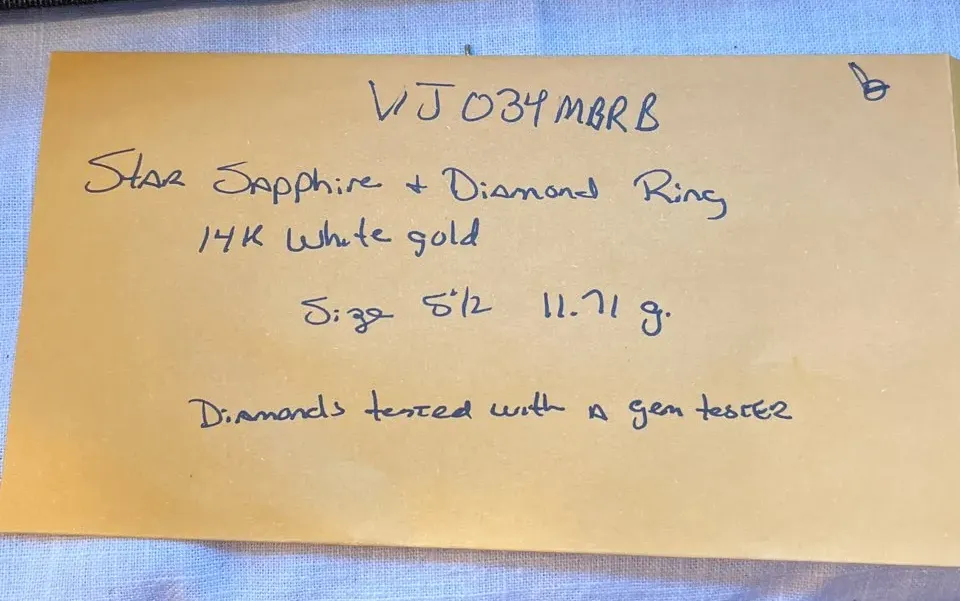 VJ034MBRB
Star Sapphire + Diamond Ring
14K White gold
Size 5 1/2 11.71 g.
Diamonds tested with a gem tester